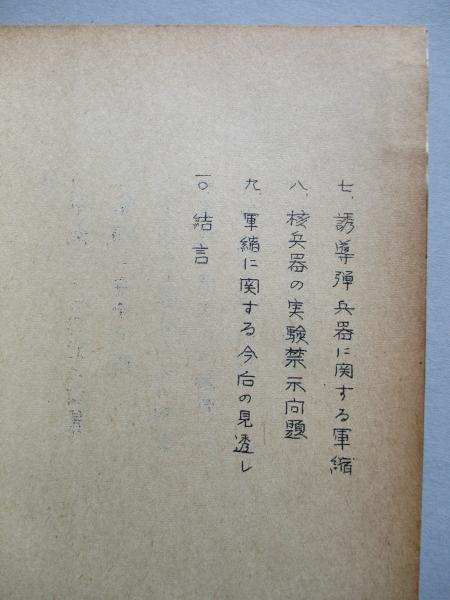 七、誘導弾兵器に関する軍縮
八、核兵器の実験禁示问題
九、軍縮に関する今后の見透し
一〇、結言